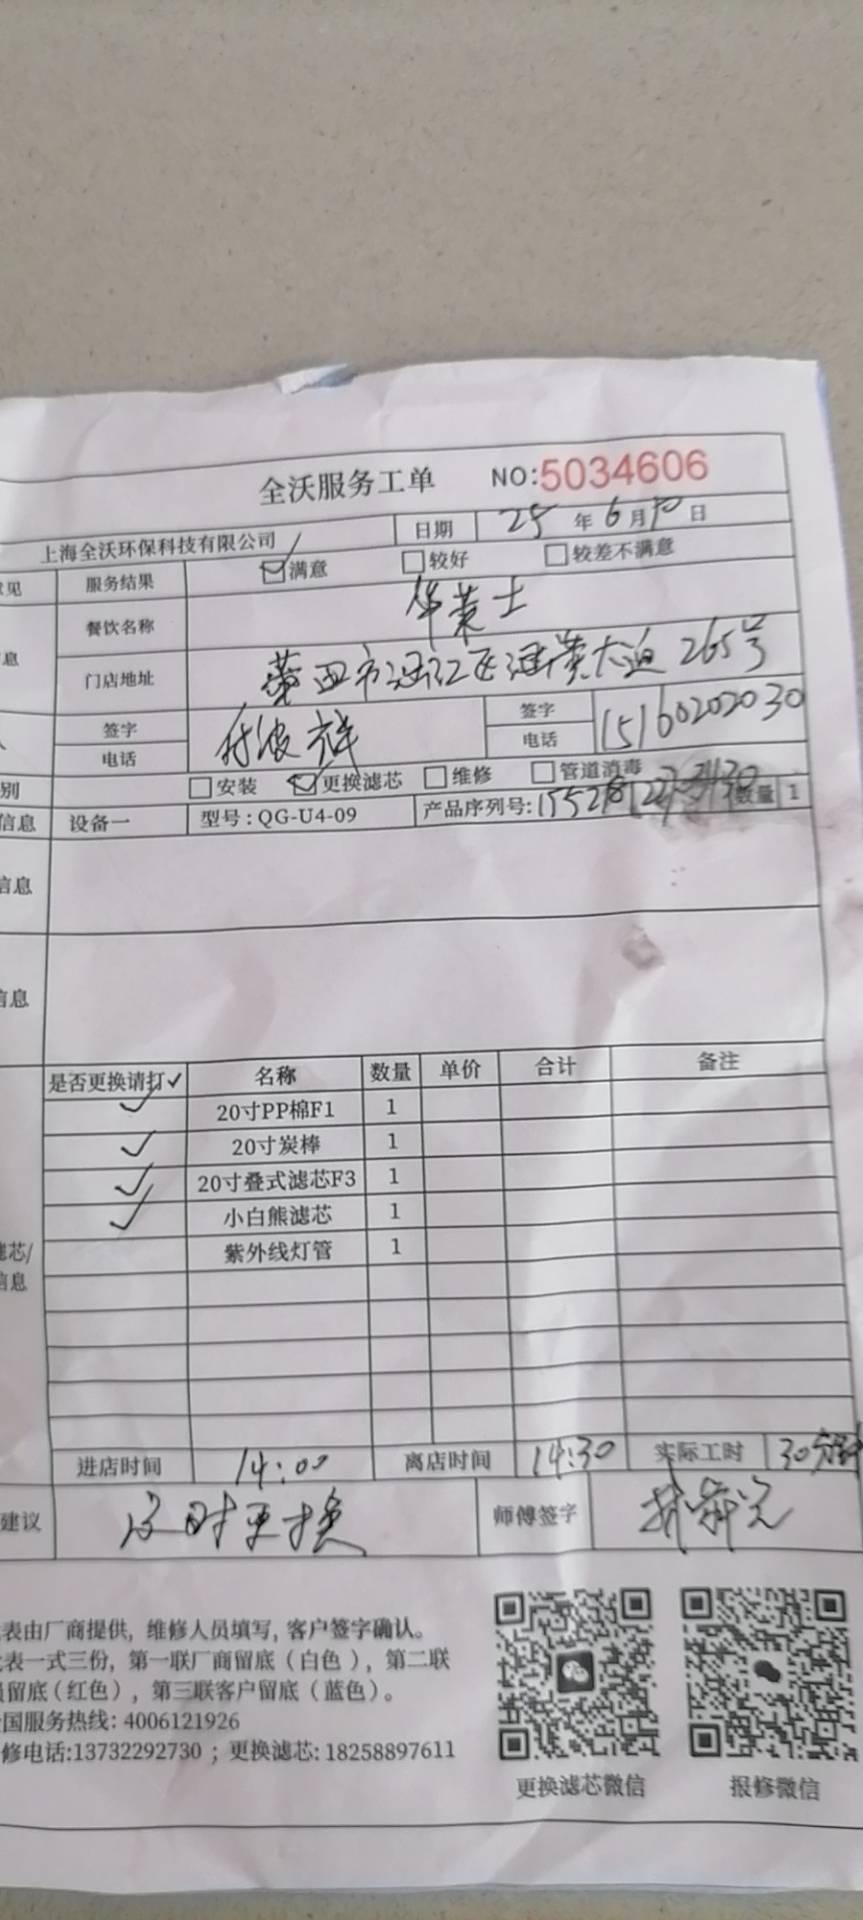 全沃服务工单 NO:5034606
上海全沃环保科技有限公司 日期 25年6月10日
意见 服务结果 满意 较好 较差不满意
息 餐饮名称 华莱士
门店地址 莆田市涵江区涵黄大道265号
签字 签字
电话 电话 15160202030
别 安装 更换滤芯 维修 管道消毒
信息 设备一 型号:QG-U4-09 产品序列号: 数量 1
信息
信息
是否更换请打✓ 名称 数量 单价 合计 备注
✓ 20寸PP棉F1 1
✓ 20寸炭棒 1
✓ 20寸叠式滤芯F3 1
✓ 小白熊滤芯 1
滤芯/ 紫外线灯管 1
信息
进店时间 14:00 离店时间 14:30 实际工时 30分钟
建议 及时更换 师傅签字
表由厂商提供, 维修人员填写, 客户签字确认。
表一式三份, 第一联厂商留底(白色), 第二联
员留底(红色), 第三联客户留底(蓝色)。
全国服务热线: 4006121926
修电话:13732292730 ; 更换滤芯: 18258897611
更换滤芯微信 报修微信